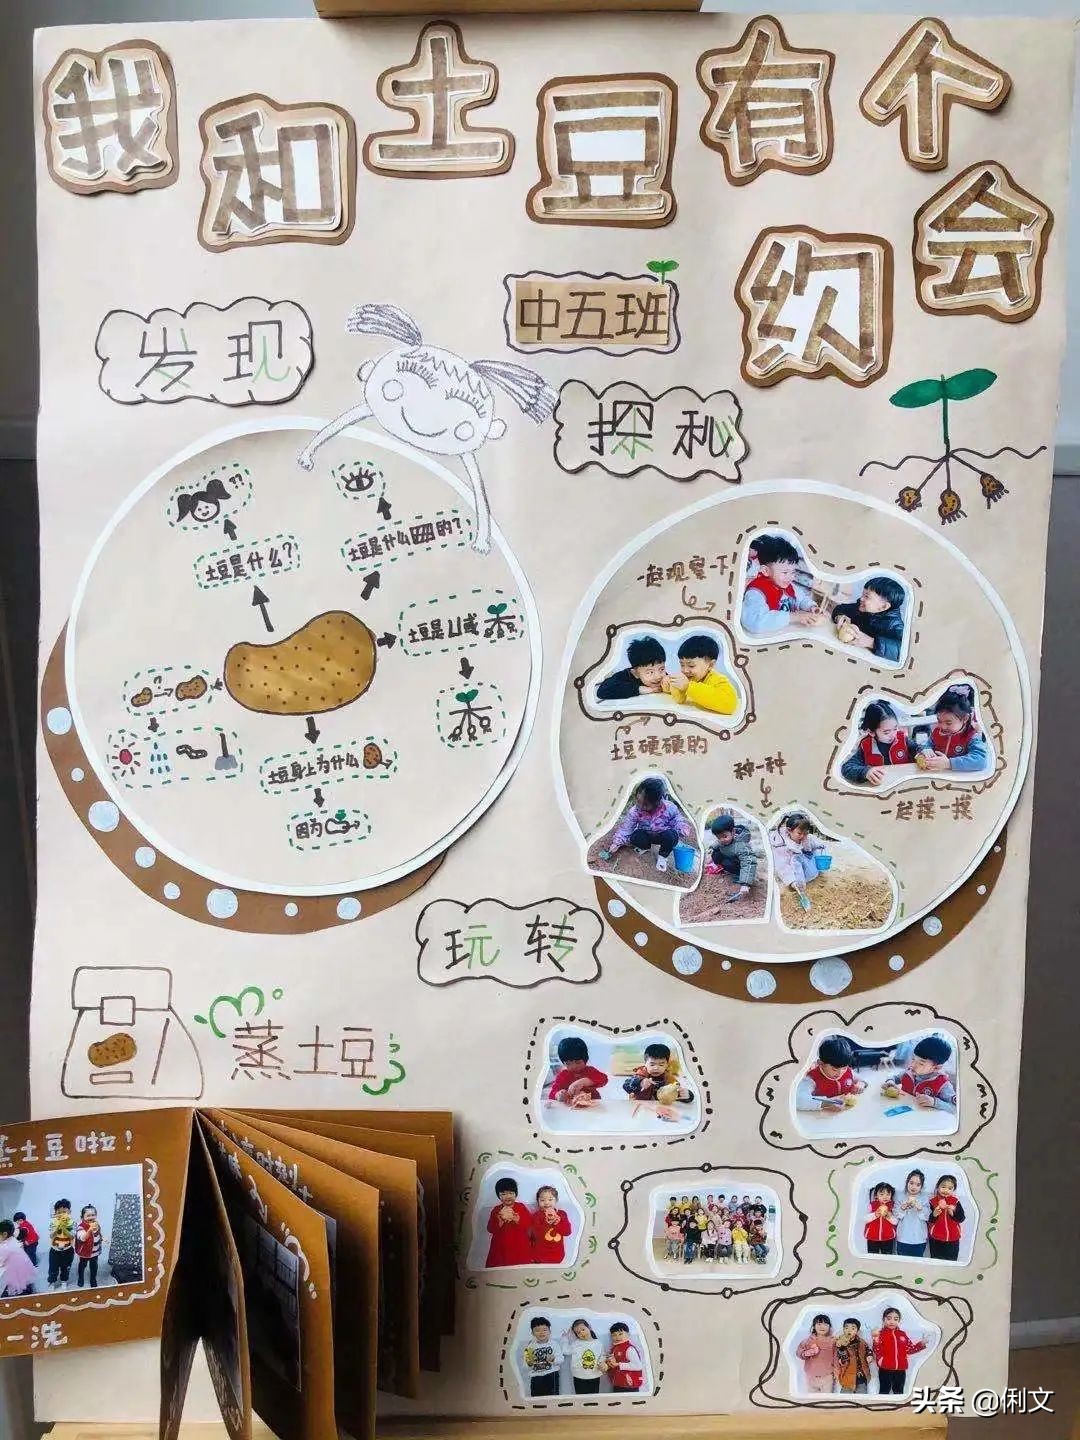 我和土豆有个约会
中五班
发现
探秘
??
土豆是什么?
土豆是什么 的?
土豆是 或
?
土豆身上为什么
因为
一起观察一下
土豆硬硬的
一起摸一摸
种一种
玩转
蒸土豆
蒸土豆啦!
一洗
头条 @俐文